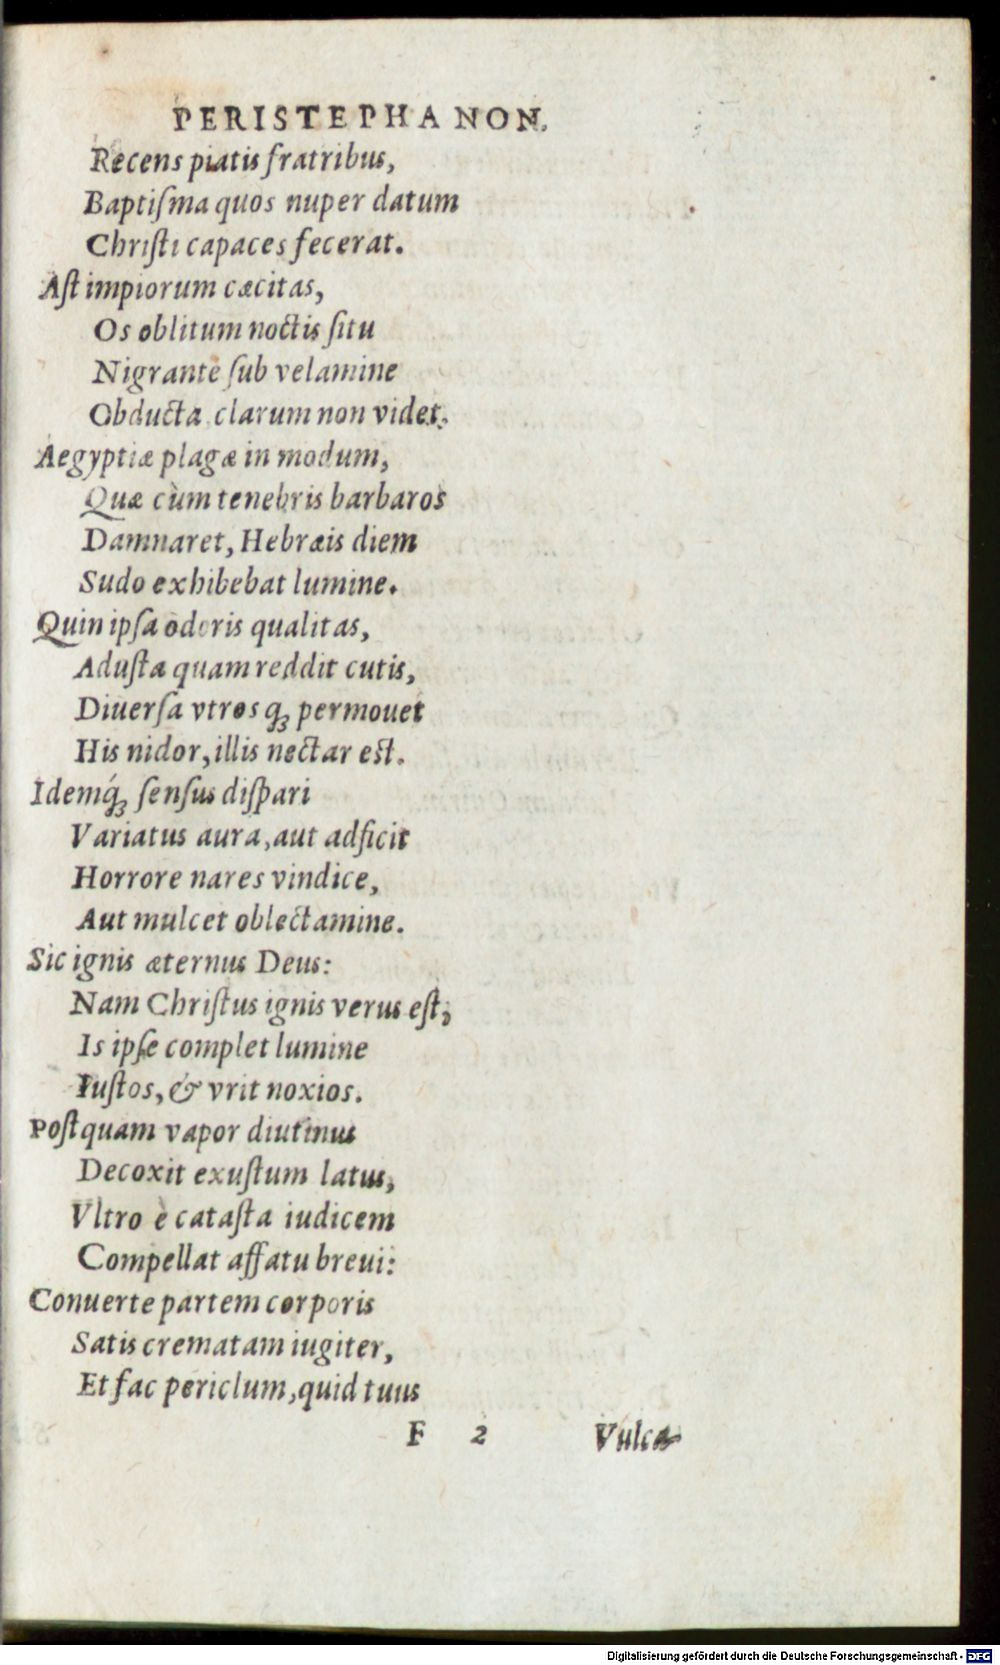 PERISTEPHANON.
Recens piatis fratribus,
Baptiſma quos nuper datum
Chriſti capaces fecerat.
Aſt impiorum cæcitas,
Os oblitum noctis ſitu
Nigrante ſub velamine
Obducta clarum non videt.
Aegyptiæ plagæ in modum,
Quæ cùm tenebris barbaros
Damnaret, Hebræis diem
Sudo exhibebat lumine.
Quin ipſa odoris qualitas,
Aduſta quam reddit cutis,
Diuerſa vtrosq; permouet
His nidor, illis nectar est.
Idemq́; ſenſus diſpari
Variatus aura, aut adficit
Horrore nares vindice,
Aut mulcet oblectamine.
Sic ignis æternus Deus:
Nam Chriſtus ignis verus eſt;
Is ipſe complet lumine
Iuſtos, & vrit noxios.
Poſtquam vapor diutinus
Decoxit exuſtum latus,
Vltro è cataſta iudicem
Compellat affatu breui:
Conuerte partem corporis
Satis crematam iugiter,
Et fac periclum, quid tuus
F 2 Vulca-
Digitalisierung gefördert durch die Deutsche Forschungsgemeinschaft - DFG